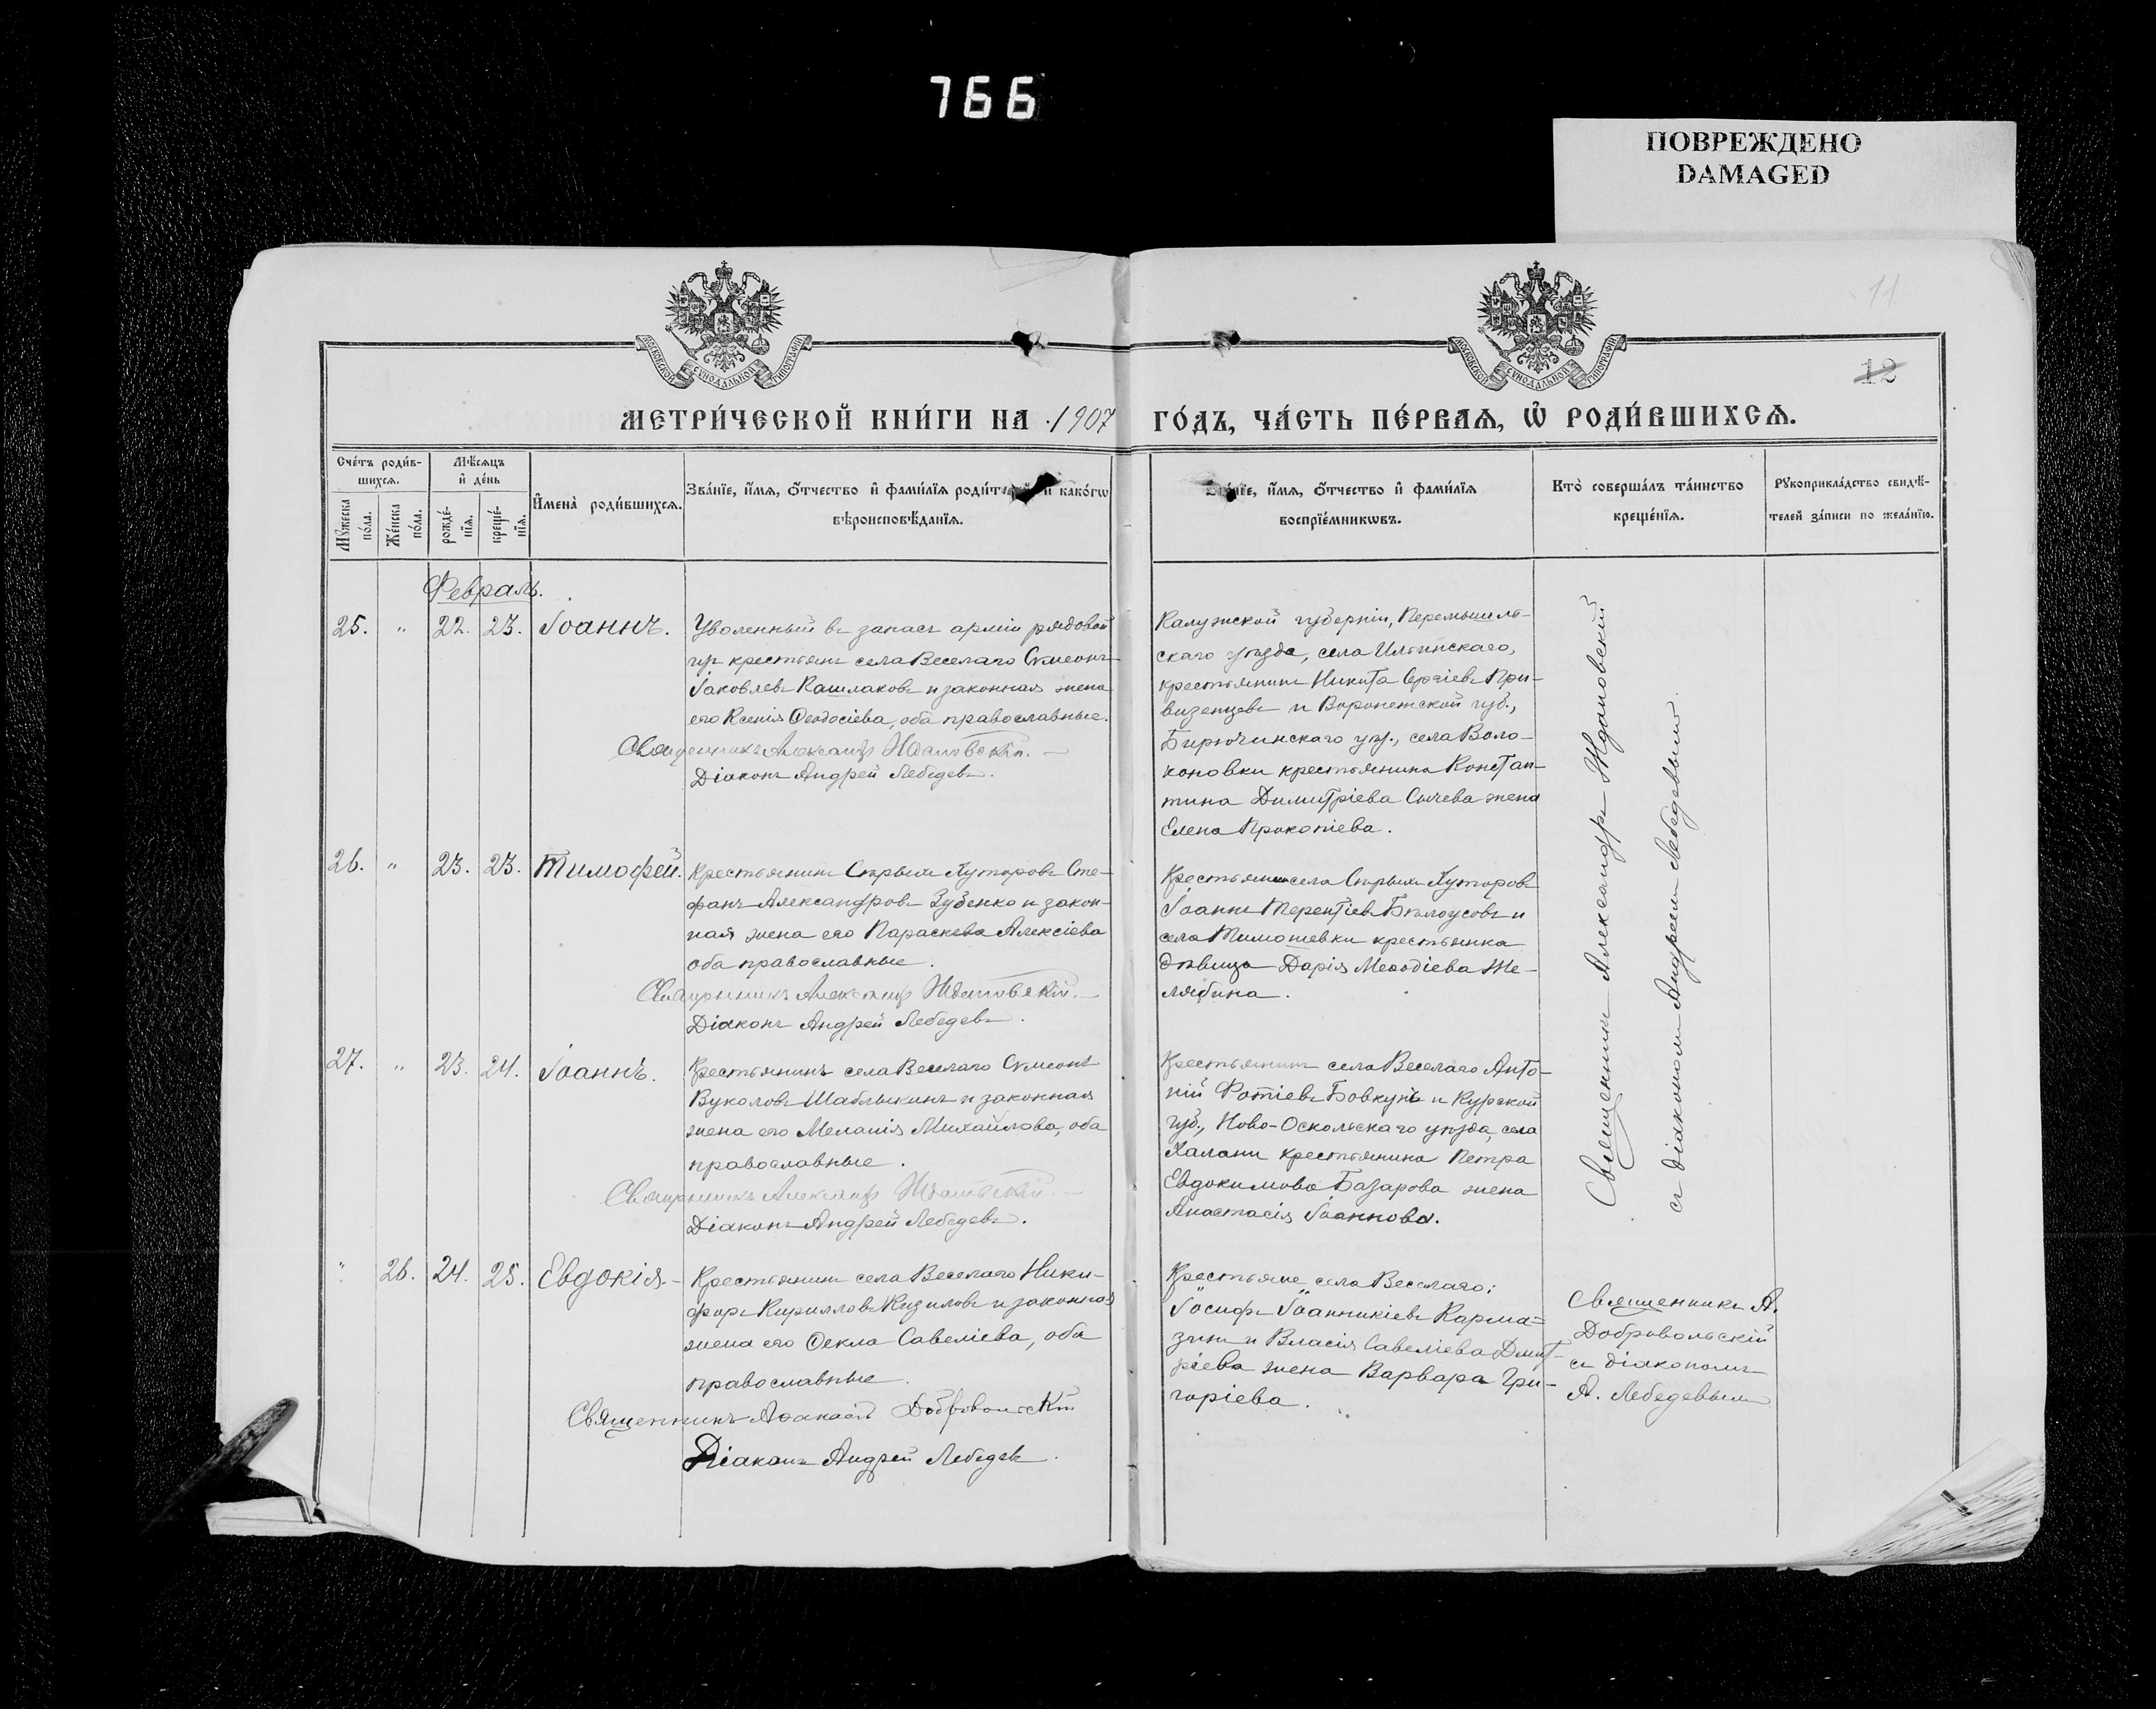 766
ПОВРЕЖДЕНО
DAMAGED
11
12
МОСКОВСКОЙ СѴНОДАЛЬНОЙ ТИПОГРАФІИ
МОСКОВСКОЙ СѴНОДАЛЬНОЙ ТИПОГРАФІИ
МЕТРИ́ЧЕСКОЙ КНИ́ГИ НА 1907 ГО́ДЪ, ЧА́СТЬ ПЕ́РВАѦ, Ѡ҆ РОДИ́ВШИХСѦ.
Сче́тъ роди́в-
шихсѧ.
Мѣ́сѧцъ
и҆ де́нь
Мꙋ́жеска
по́ла.
Же́нска
по́ла.
рожде́-
нїѧ.
креще́-
нїѧ.
И҆мена̀ роди́вшихсѧ.
Зва́нїе, и҆́мѧ, ѻ҆́тчество и҆ фами́лїѧ роди́т и҆ како́гѡ
вѣроисповѣ́данїѧ.
Зва́нїе, и҆́мѧ, ѻ҆́тчество и҆ фами́лїѧ
воспрїе́мникѡвъ.
Кто̀ соверша́лъ та́инство
креще́нїѧ.
Рꙋкоприкла́дство свидѣ́-
телей за́писи по жела́нїю.
Февраль.
25. " 22. 23. Іоаннъ.
Уволенный въ запасъ арміи рядовой
изъ крестьянъ села Веселаго Симеонъ
Іаковлевъ Кашлаковъ и законная жена
его Ксенія Ѳеодосіева, оба православные.
Священникъ Александръ Ждановскій.
Діаконъ Андрей Лебедевъ.
Калужской губерніи, Перемышль-
скаго уѣзда, села Ильинскаго,
крестьянинъ Никита Сергіевъ При-
визенцевъ и Воронежской губ.,
Бирюченскаго уѣз., села Воло-
коновки крестьянина Констан-
тина Димитріева Сычева жена
Елена Прокопіева.
26. " 23. 23. Тимофей.
Крестьянинъ Старыхъ Хуторовъ Сте-
фанъ Александровъ Зубенко и закон-
ная жена его Параскева Алексіева
оба православные.
Священникъ Александръ Ждановскій.
Діаконъ Андрей Лебедевъ.
Крестьяне села Старыхъ Хуторовъ
Іоаннъ Терентіевъ Бѣлоусовъ и
села Тимошевки крестьянка
дѣвица Дарія Меѳодіева Же-
лябина.
27. " 23. 24. Іоаннъ.
Крестьянинъ села Веселаго Симеонъ
Вуколовъ Шаблыкинъ и законная
жена его Меланія Михайлова, оба
православные.
Священникъ Александръ Ждановскій.
Діаконъ Андрей Лебедевъ.
Крестьянинъ села Веселаго Анто-
ній Фотіевъ Бовкунъ и Курской
губ., Ново-Оскольскаго уѣзда, села
Халани крестьянина Петра
Евдокимова Базарова жена
Анастасія Іоаннова.
Священникъ Александръ Ждановскій
съ діакономъ Андреемъ Лебедевымъ.
" 26. 24. 25. Евдокія.
Крестьянинъ села Веселаго Ники-
форъ Кирилловъ Кизиловъ и законная
жена его Ѳекла Савеліева, оба
православные.
Священникъ Аѳанасій Добровольскій
Діаконъ Андрей Лебедевъ.
Крестьяне села Веселаго:
Іосифъ Іоанникіевъ Карма-
зинъ и Власія Савеліева Дмит-
ріева жена Варвара Гри-
горіева.
Священникъ А.
Добровольскій
съ діакономъ
А. Лебедевымъ